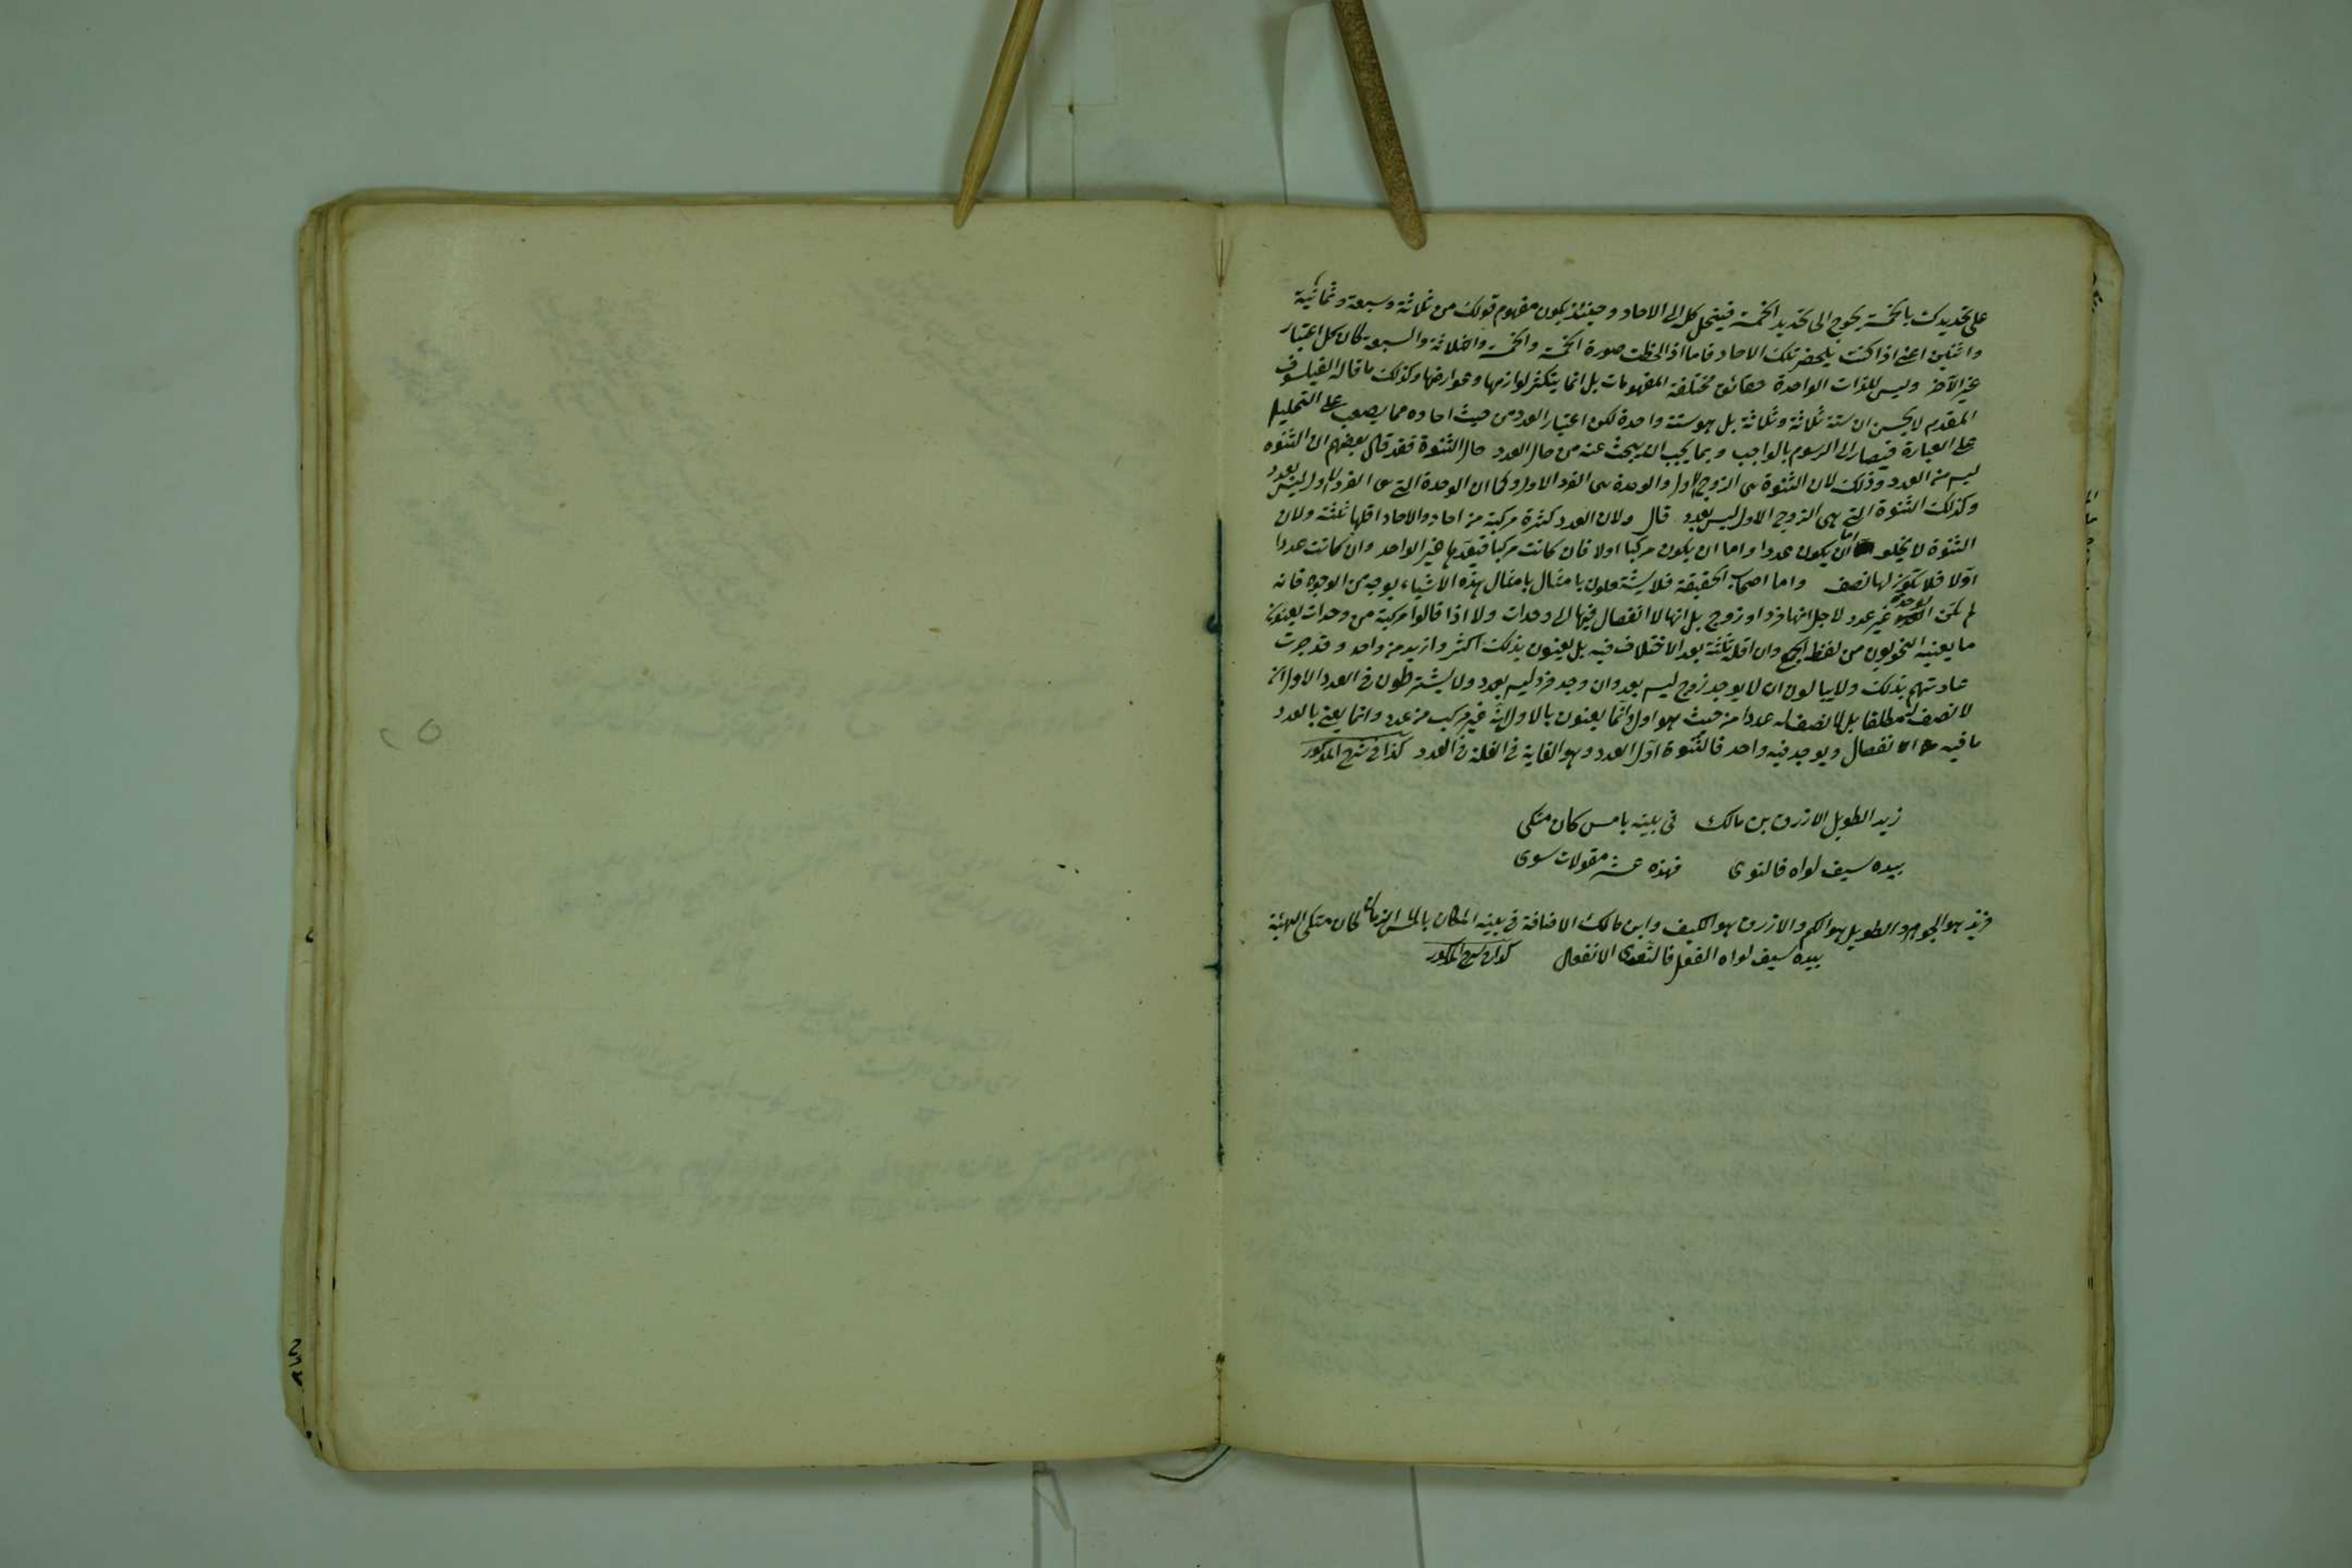 على تحديدك بالخمسة يحوج الى تحديد الخمسة فينحل كله الى الاحاد وحينئذ يكون مفهوم قولك من ثلاثة وسبعة وثمانية
واثنين اعنى اذا كنت يلحضر تلك الاحاد فاما اذا لحظت صورة الخمسة والخمسة والثلاثة والسبعة كان كل اعتبار
غير الآخر وليس للذات الواحدة حقائق مختلفة المفهومات بل انما يتكثر لوازمها وعوارضها وكذلك ما قاله الفيلسوف
المقدم لا تحسبن ان ستة ثلاثة وثلاثة بل هو ستة واحدة لكن اعتبار العدد من حيث احاده مما يصعب على التحليل
على العبارة فيصار الى الرسوم بالواجب ومما يجب ان يبحث عنه من حال العدد حال الثنوة فقد قال بعضهم ان الثنوه
ليس من العدد وذلك لان الثنوة هى الزوج الاول والوحدة هى الفرد الاول وكما ان الوحدة التى هى الفرد الاول ليس بعدد
وكذلك الثنوة التى هى الزوج الاول ليس بعدد قال ولان العدد كثرة مركبة من احاد والاحاد اقلها ثلثة ولان
الثنوة لا تخلو اما ان يكون عددا واما ان يكون مركبا اولا فان كانت مركبا فيعدها غير الواحد وان كانت عددا
اولا فلا يكون لها نصف واما اصحاب الحقيقة فلا يشتغلون بامثال بامثال هذه الاشياء بوجه من الوجوه فانه
لم تكن الوحدة غير عدد لاجل انها فرد او زوج بل انها لا انفصال فيها الى وحدات ولا اذا قالوا مركبة من وحدات يعنون
ما يعنيه النحويون من لفظ الجمع وان اقله ثلثة بعد الاختلاف فيه بل يعنون بذلك اكثر وازيد من واحد وقد جرت
عادتهم بذلك ولا يبالون ان لا يوجد زوج ليس بعدد وان وجد فرد ليس بعدد ولا يشترطون فى العدد الاول ان
لا نصف له مطلقا بل لا نصف له عددا من حيث هو اول وانما يعنون بالاول انه غير مركب من عدد وانما يعنى بالعدد
ما فيه انفصال ويوجد فيه واحد فالثنوة اول العدد وهو الغاية فى القلة فى العدد كذا فى شرح المذكور
زيد الطويل الازرق بن مالك فى بيته بالامس كان متكى
بيده سيف لواه فالتوى فهذه عشر مقولات سوى
فزيد هو الجوهر والطويل هو الكم والازرق هو الكيف وابن مالك الاضافة فى بيته المكان بالامس الزمان كان متكى الهيئة
بيده سيف لواه الفعل فالتوى الانفعال كذا فى شرح المذكور